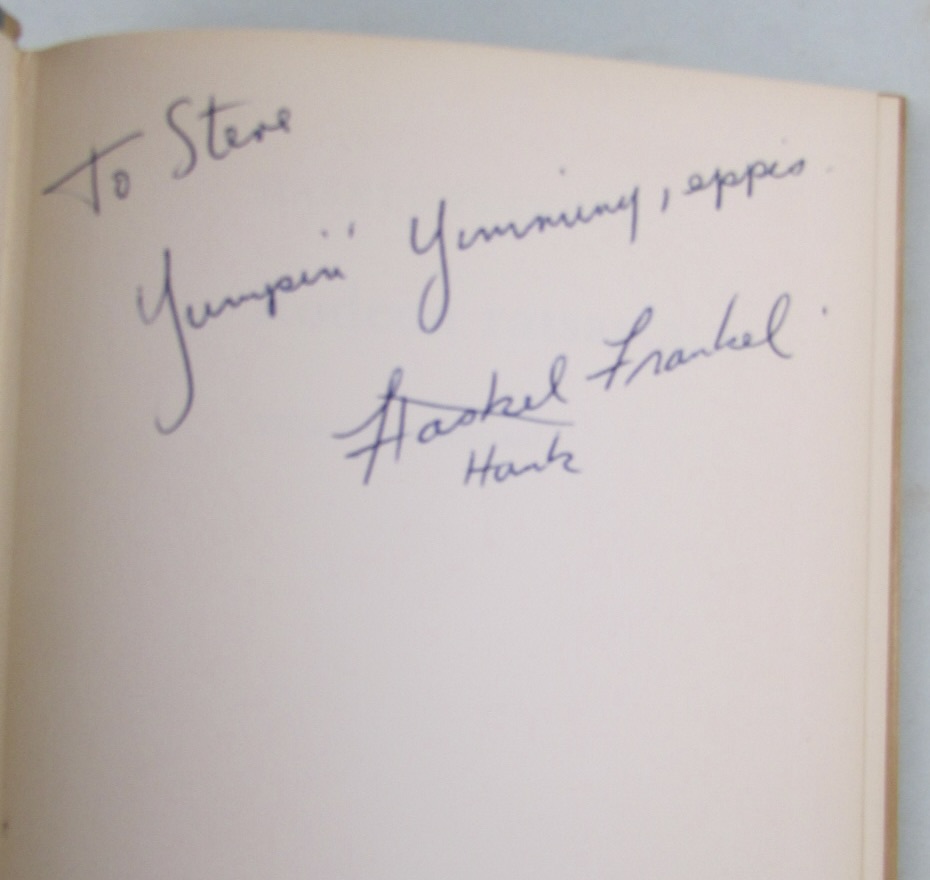 To Steve
Yumpin' Yimminy, eppis.
Haskel Frankel
Hank